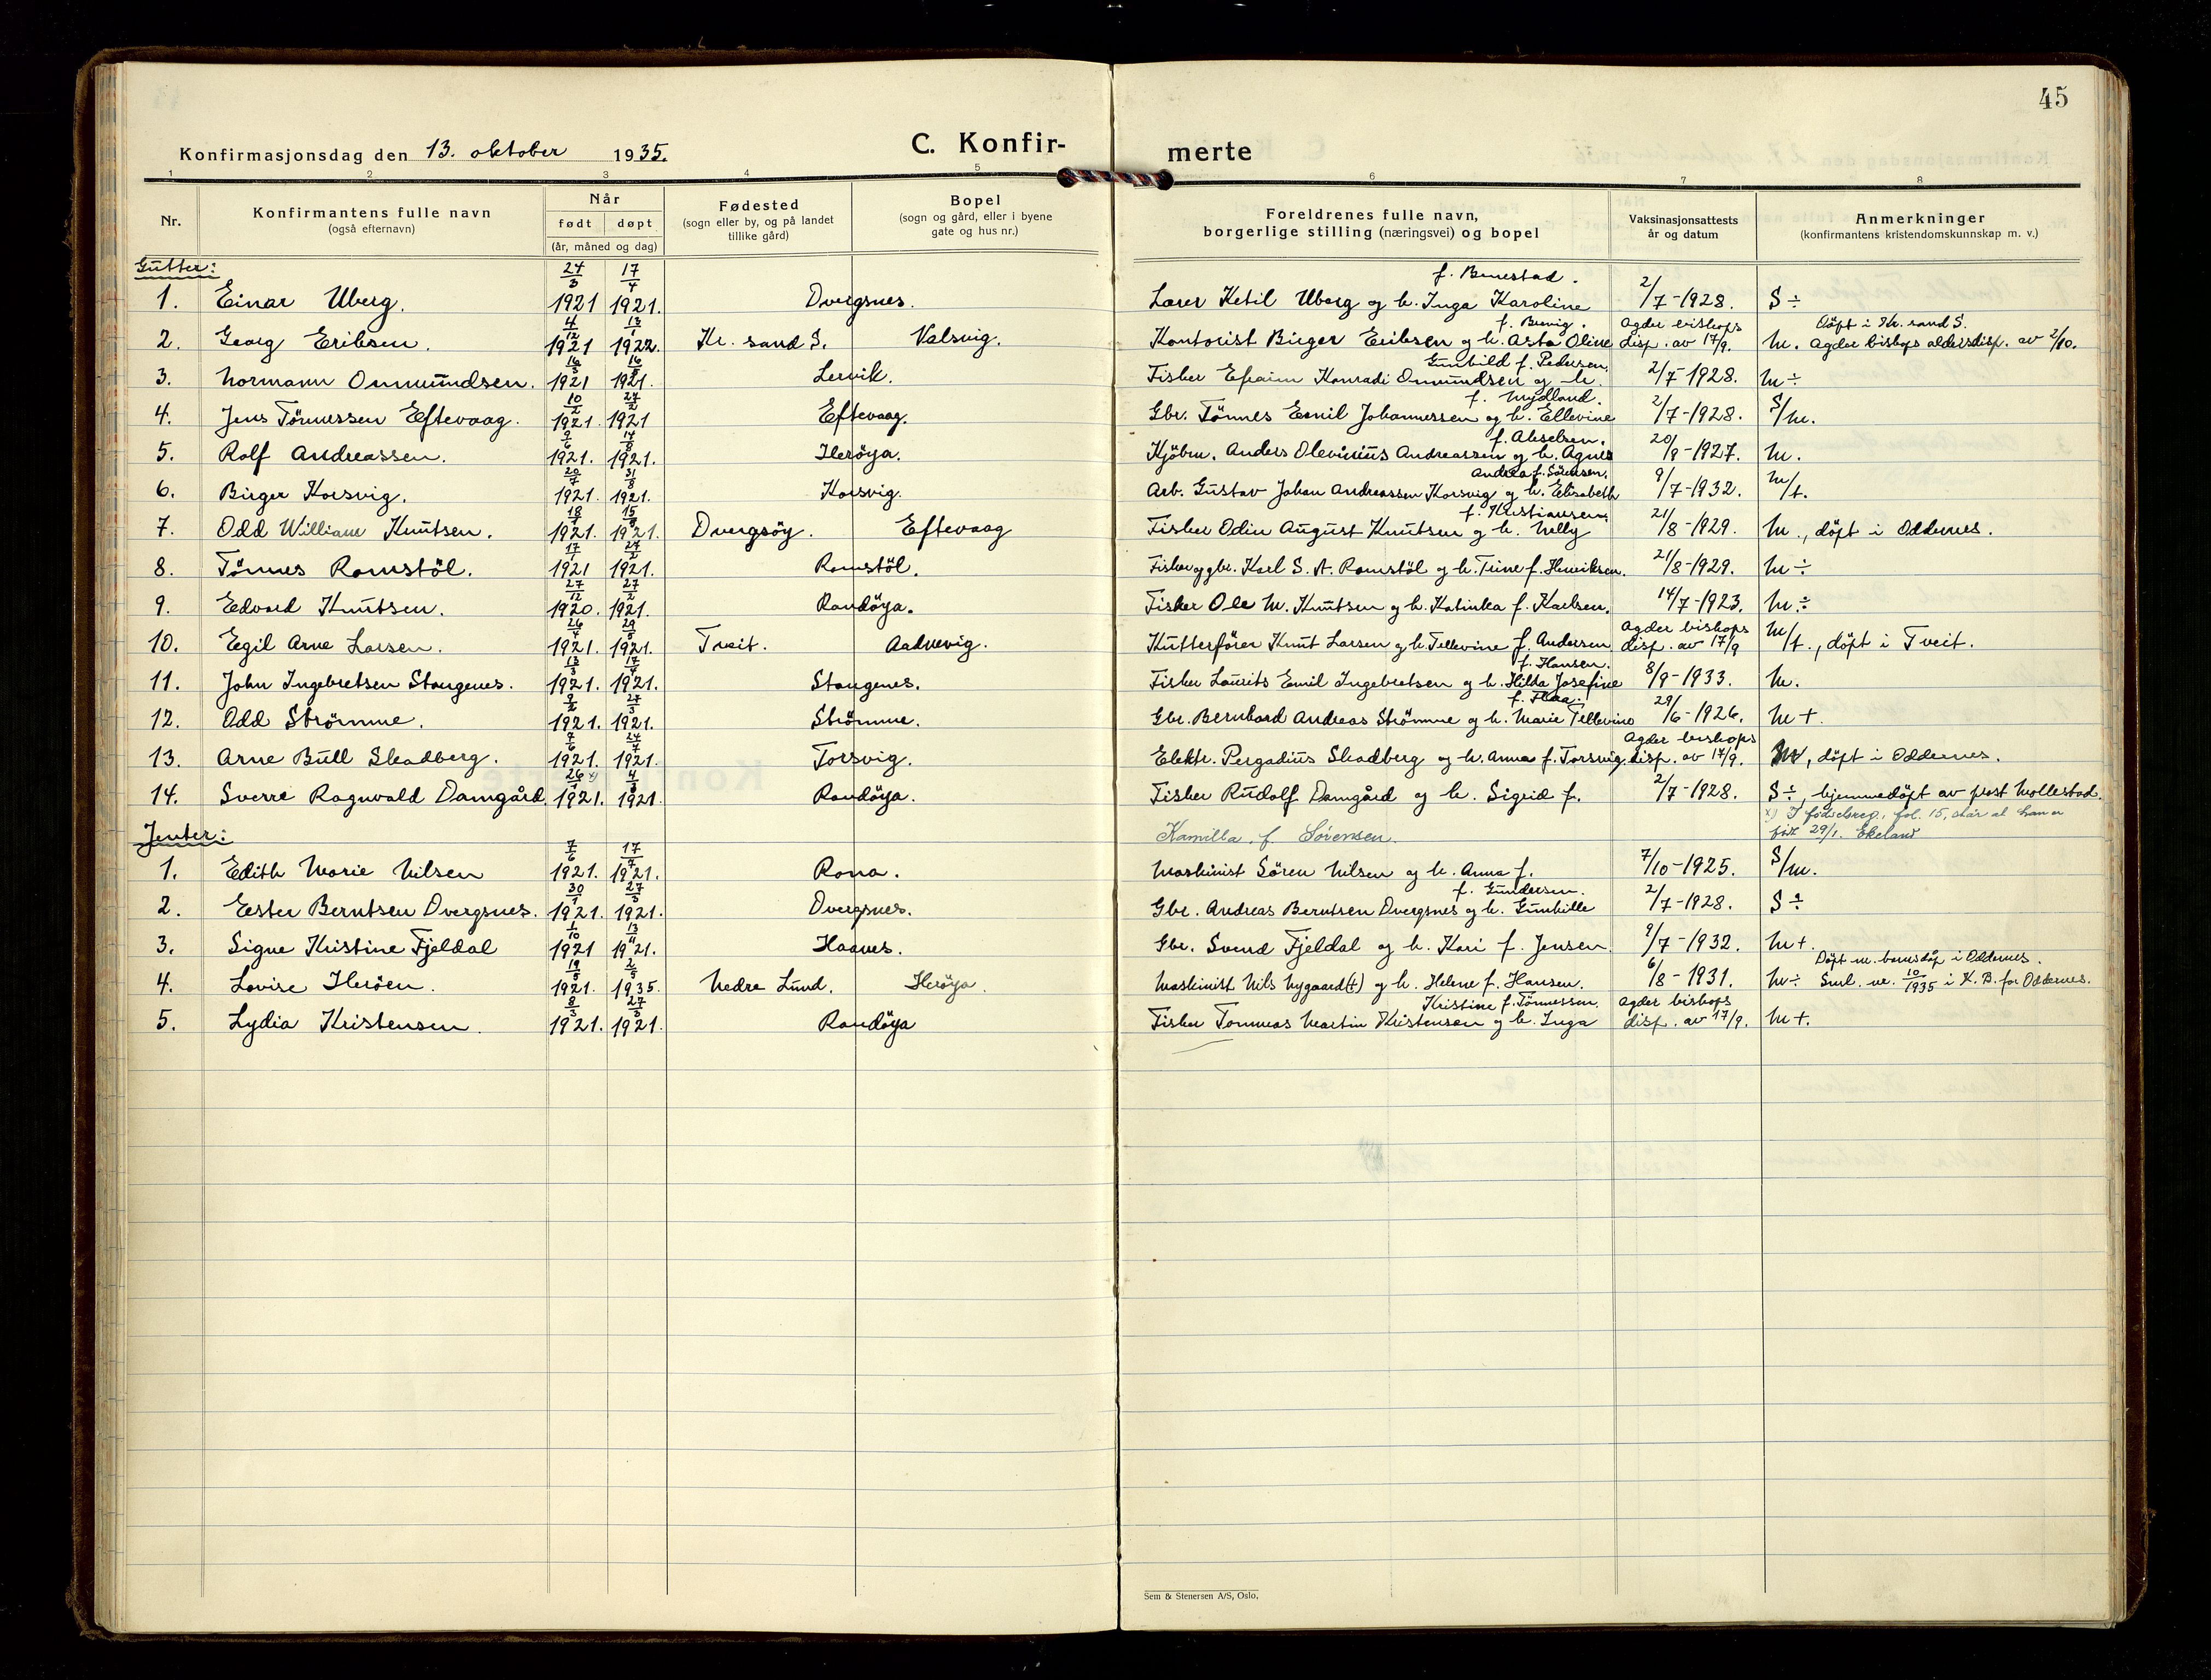 45
Konfirmasjonsdag den 13. oktober 1935.
C. Konfir-
merte
1 2 3 4 5 6 7 8
Nr.
Konfirmantens fulle navn
(også efternavn)
Når
født døpt
(år, måned og dag)
Fødested
(sogn eller by, og på landet
tillike gård)
Bopel
(sogn og gård, eller i byene
gate og hus nr.)
Foreldrenes fulle navn,
borgerlige stilling (næringsvei) og bopel
Vaksinasjonsattests
år og datum
Anmerkninger
(konfirmantens kristendomskunnskap m. v.)
Gutter:
1. Einar Uberg. 24/3 1921 17/4 1921. Dvergsnes. Lærer Ketil Uberg og h. Inga Karoline f. Benestad. 2/7-1928. S ÷
2. Georg Eriksen. 4/12 1921 1922. Kr. sand S. Valsvig. Kontorist Birger Eriksen og h. Asta Oline f. Brevig. Agder bishops disp. av 17/9. M. Döpt i Kr. sand S. Agder bishops aldersdisp. av 2/10.
3. Normann Ommundsen. 1921 1921. Lervik. Fisker Efraim Konradi Ommundsen og h. Gunhild f. Pedersen. 2/7-1928. M ÷
4. Jens Tönnessen Eftevaag. 10/2 1921. 27/2 1921 Eftevaag. Gbr. Tönnes Emil Johannessen og h. Ellevine f. Mydland. 2/7-1928. S/M.
5. Rolf Andreassen. 1921. 1921. Heröya. Kjöbm. Anders Olevinius Andreassen og h. Agnes f. Akselsen. 20/9-1927. M.
6. Birger Korsvig. 20/7 1921. 31/8 1921. Korsvig. Arb. Gustav Johan Andreassen Korsvig og h. Elisabeth Andrea f. Sörensen. 9/7-1932. M/t.
7. Odd William Knutsen. 1921. 1921. Dvergsöy. Eftevaag Fisker Odin August Knutsen og h. Nelly f. Kristiansen. 21/8-1929. M., döpt i Oddernes.
8. Tönnes Romstöl. 17/1 1921 27/2 1921. Romstöl. Fisker og gbr. Karl S. A. Romstöl og h. Trine f. Henriksen. 21/8-1929. M ÷
9. Edvard Knutsen. 27/12 1920. 27/2 1921. Randöya. Fisker Ole M. Knutsen og h. Katinka f. Karlsen. 14/7-1923. M. ÷
10. Egil Arne Larsen. 26/4 1921. 29/5 1921. Tveit. Aadnevig. Kutterförer Knut Larsen og h. Tellevine f. Andersen. Agder bishops disp. av 17/9 M/t., döpt i Tveit.
11. John Ingebretsen Stangenes. 13/3 1921. 17/4 1921. Stangenes. Fisker Laurits Emil Ingebretsen og h. Hilda Josefine f. Hansen. 8/9-1933. M.
12. Odd Strömme. 9/2 1921. 27/3 1921. Strömme. Gbr. Bernhard Andreas Strömme og h. Marie Tellevine 29/6-1926. M +.
13. Arne Bull Skadberg. 7/6 1921. 24/7 1921. Torsvig. Elektr. Pergadius Skadberg og h. Anna f. Torsvig. Agder bishops disp. av 17/9. M, döpt i Oddernes.
14. Sverre Ragnvald Damgård. 26/1 x) 1921. 1921. Randöya. Fisker Rudolf Damgård og h. Sigrid f. 2/7-1928. S ÷, hjemmedöpt av prost Mollestad.
Kamilla. f. Sörensen.
x) I fødselsreg., fol. 15, står at han er
født 29/1. Ekeland
Jenter:
1. Edith Marie Nilsen 7/6 1921. 17/7 1921. Rona. Maskinist Sören Nilsen og h. Anna f. 7/10-1925. S/M.
2. Ester Berntsen Dvergsnes. 30/1 1921. 27/3 1921. Dvergsnes. Gbr. Andreas Berntsen Dvergsnes og h. Gunhille f. Gundersen. 2/7-1928. S ÷
3. Signe Kristine Fjeldal 1/10 1921 13/11 1921. Haanes. Gbr. Svend Fjeldal og h. Kari f. Jensen. 9/7-1932. M +.
4. Lovise Heröen. 19/5 1921. 2/5 1935. Nedre Lund. Heröya. Maskinist Nils Nygaard (+) og h. Helene f. Hansen. 6/8-1931. M ÷ Döpt m. barnedåp i Oddernes. Sml. nr. 10/1935 i K. B. for Oddernes.
5. Lydia Kristensen. 8/3 1921. 27/3 1921. Randöya Fisker Tommas Martin Kristensen og h. Inga Kristine f. Tönnessen. Agder bishops disp. av 17/9. M +.
Sem & Stenersen A/S, Oslo.